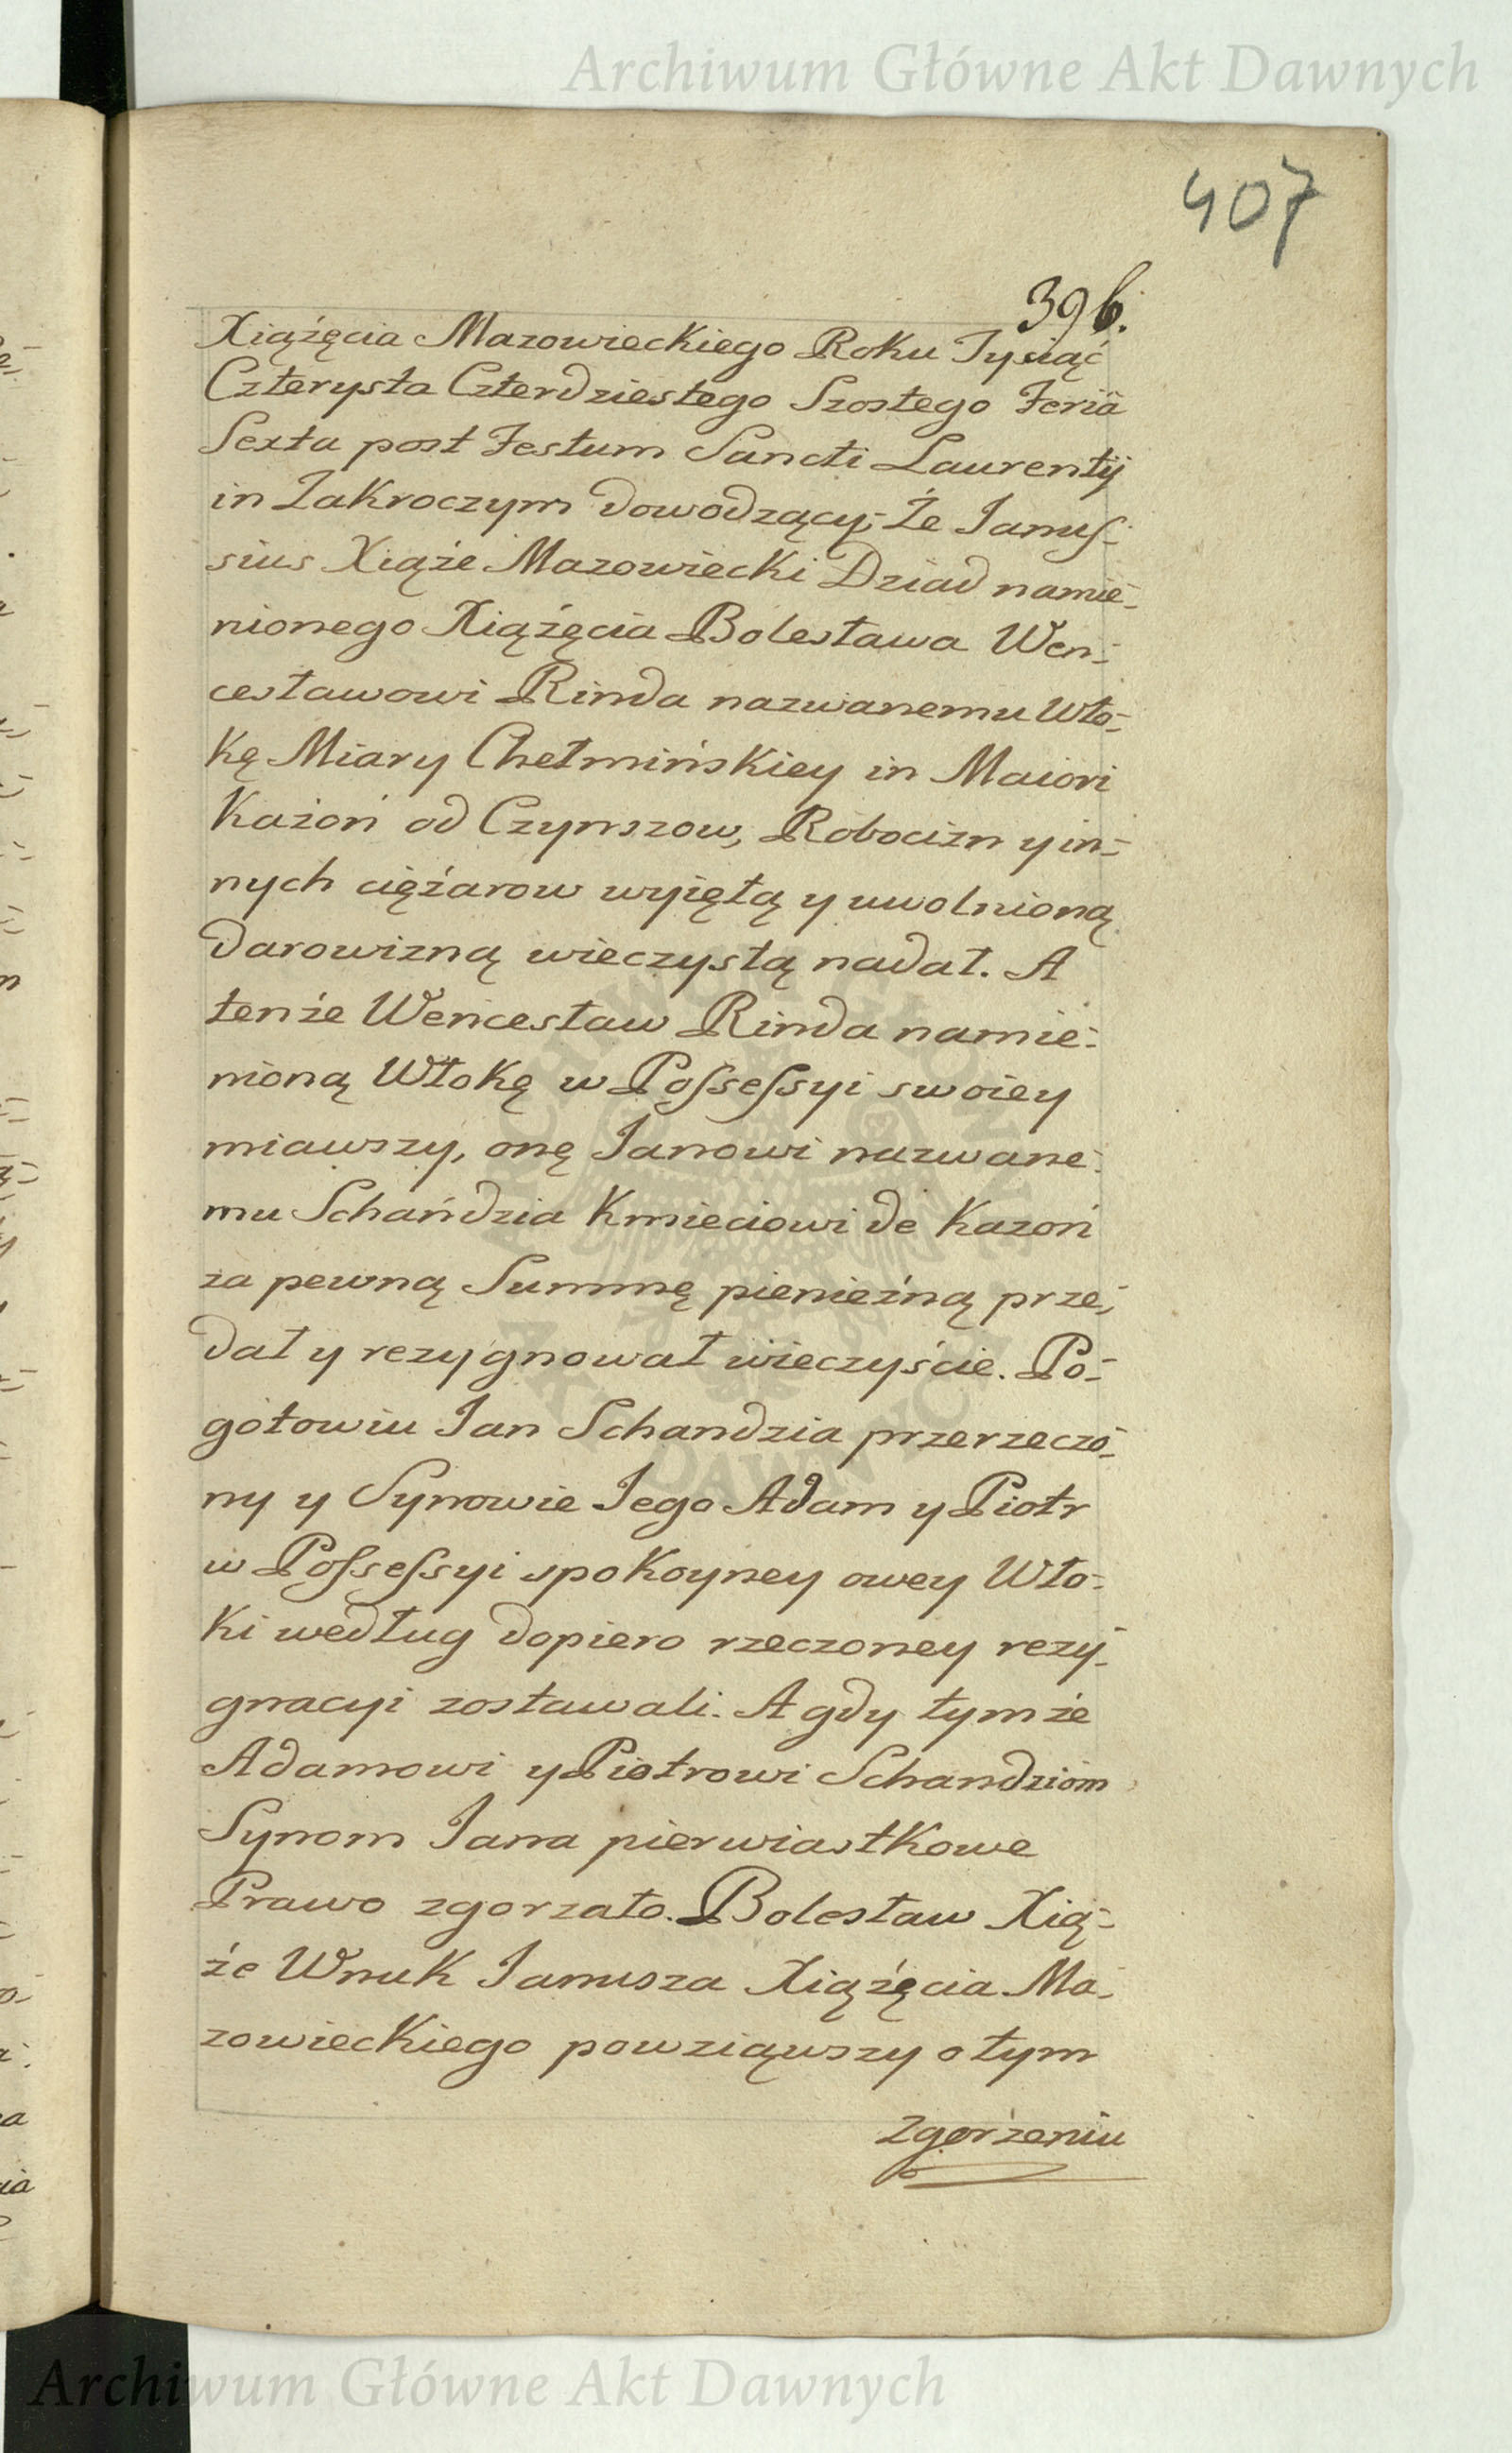 Archiwum Główne Akt Dawnych
407
396.
Xiążęcia Mazowieckiego Roku Tysiąć
Czterysta Czterdziestego Szostego Feria
Sexta post Festum Sancti Laurentÿ
in Zakroczym dowodzący; Że Janus-
sius Xiąże Mazowiecki Dziad namie-
nionego Xiążęcia Bolesława Wen-
cesławowi Rinda nazwanemu Wło-
kę Miary Chełmińskiey in Maiori
Każoń od Czynszow, Robocizn y in-
nych ciężarow wyiętą y uwolnioną
darowizną wieczystą nadał. A
tenże Wencesław Rinda namie-
nioną Włokę w Possessyi swoiey
miawszy, onę Janowi nazwane-
mu Schańdzia Kmieciowi de Kazoń
za pewną Summę pienieżną prze-
dał y rezygnował wieczyście. Po-
gotowiu Jan Schandzia przerzeczo-
ny y Synowie Jego Adam y Piotr
w Possessyi spokoyney owey Wło-
ki według dopiero rzeczoney rezy-
gnacyi zostawali. A gdy tymże
Adamowi y Piotrowi Schandziom
Synom Jana pierwiastkowe
Prawo zgorzało. Bolesław Xią-
że Wnuk Janusza Xiążęcia Ma-
zowieckiego powziąwszy o tym
zgorzeniu
Archiwum Główne Akt Dawnych